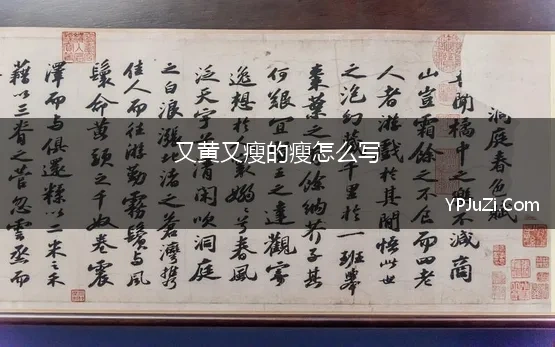 又黄又瘦的瘦怎么写
YPJuZi.Com
洞庭春色賦
聞橘中之樂不減商
山豈霜餘之不食而四老
人者游戲於其間悟此世
之泡幻藏千里於一班舉
棗葉之有餘納芥子其
何艱宜賢王之達觀寄
逸想於人寰嫋嫋兮春風
泛天宇兮清閑吹洞庭
之白浪漲北渚之蒼灣攜
佳人而往游勤霧鬢与風
鬟命黃頭之千奴卷震
澤而与俱還糅以二米之禾
藉以三脊之菅忽雲烝而